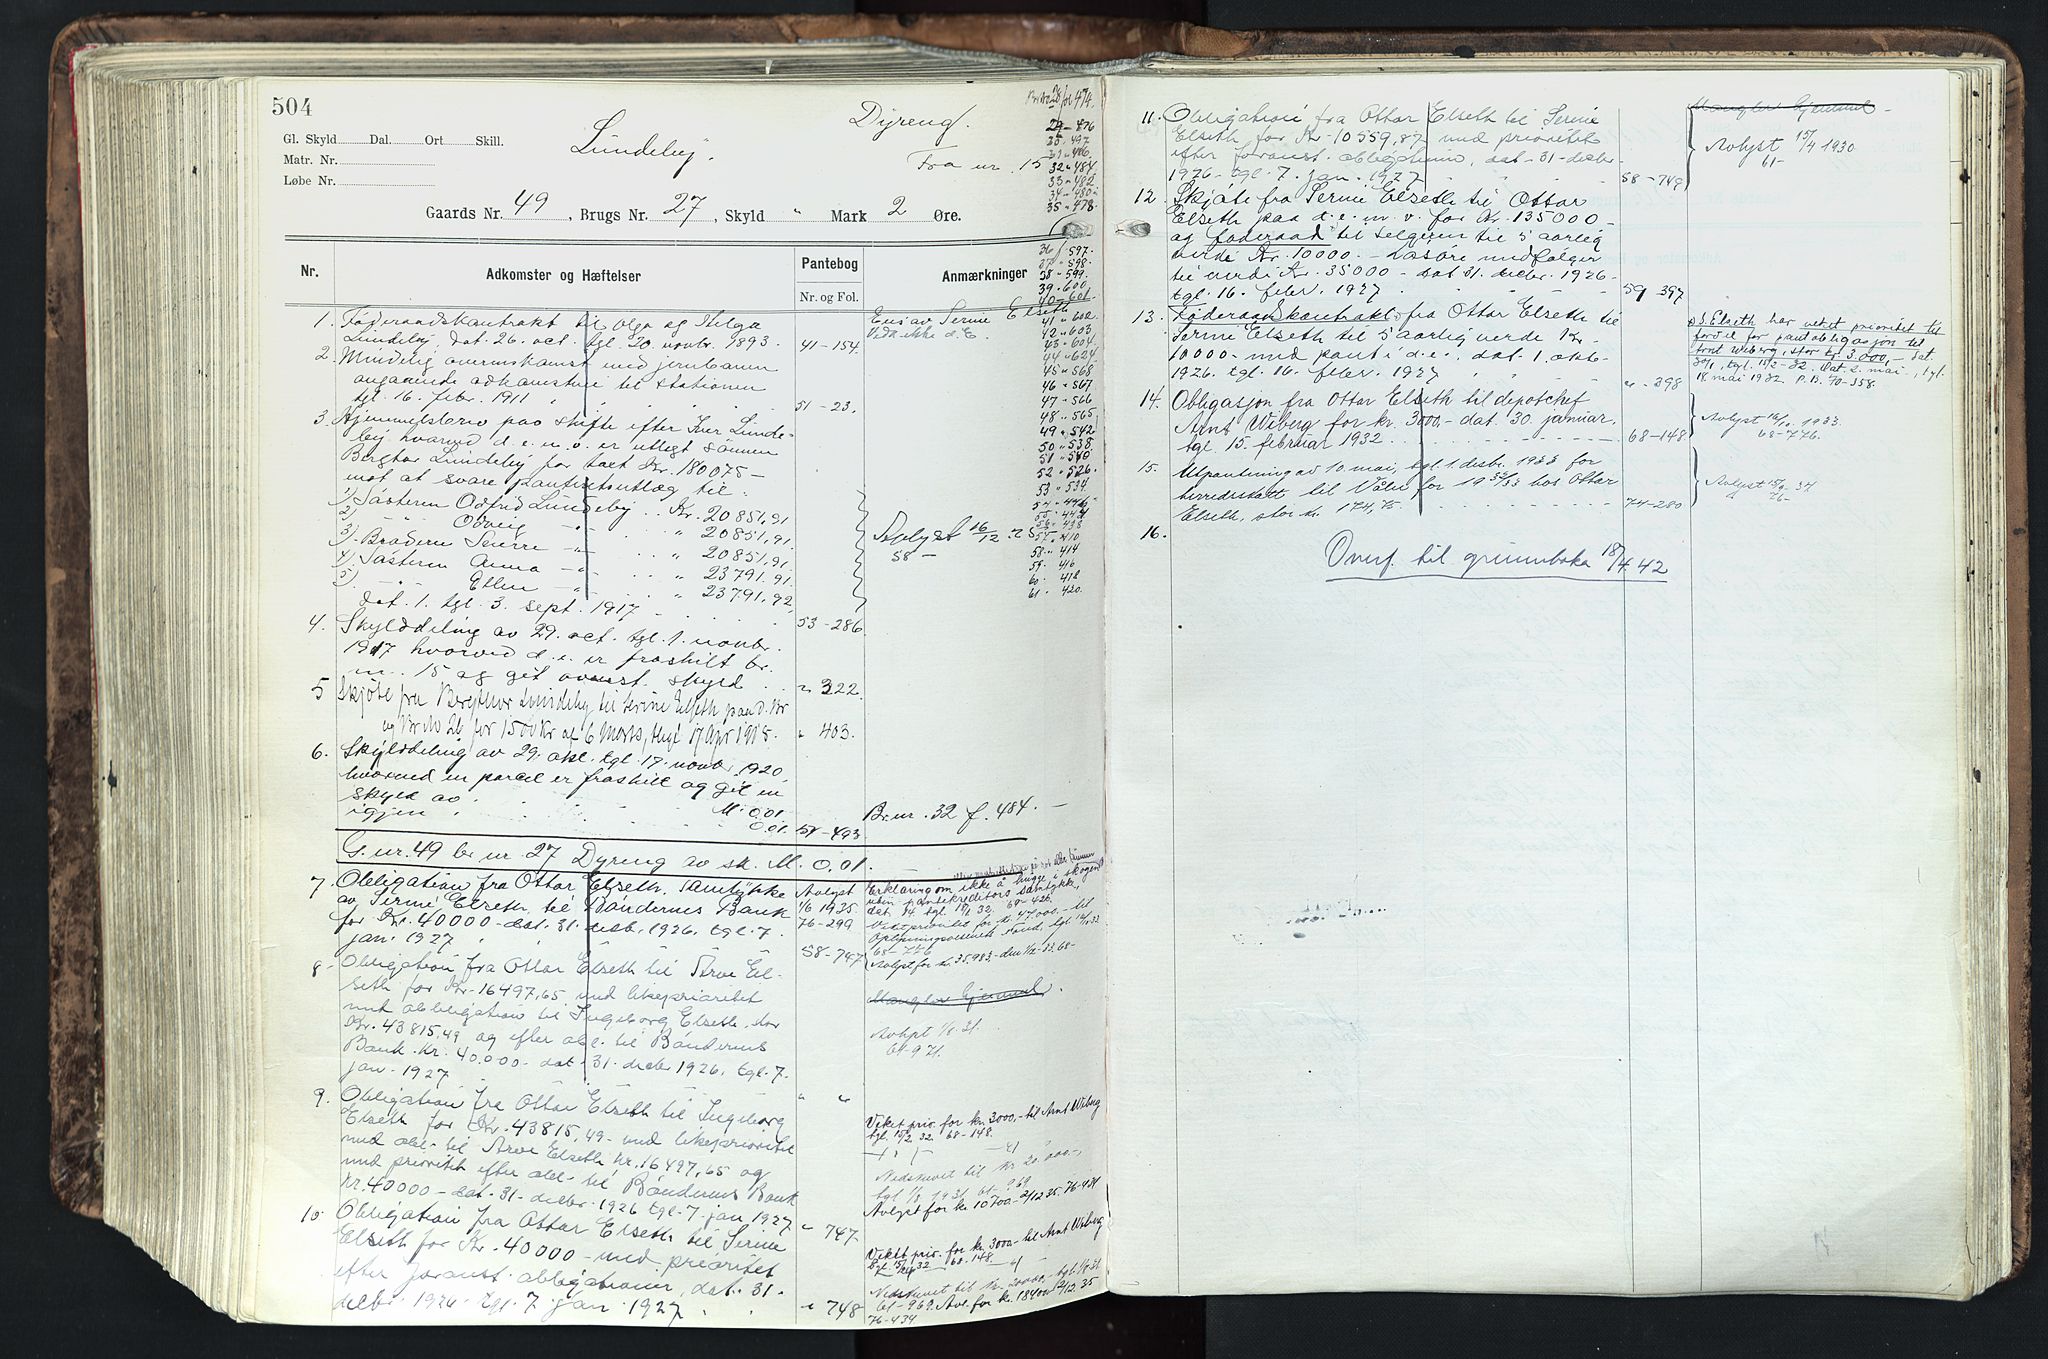 504
Gl. Skyld Dal. Ort Skill.
Matr. Nr.
Løbe Nr.
Lundeby. Dyreng.
Fra nr. 15
Gaards Nr. 49, Brugs Nr. 27, Skyld " Mark 2 Øre.
29 - 476
30 - 497
31 - 486
32 - 484
33 - 482
34 - 480
35 - 478
36 / 597.
37 - 598.
38 - 599.
39 - 600.
40 - 601.
41 " 602
42 " 603
43 " 604
44 " 624
45 " 568
46 " 567
47 " 566
48 " 565
49 " 542
50 " 538
51 " 540
52 " 526
53 " 534
54 - 446
55 - 442
56 - 438
57 - 410
58 - 414
59 - 416
60 - 418
61 - 420.
Nr. Adkomster og Hæftelser Pantebog Anmærkninger
Nr. og Fol.
1. Føderaadskontrakt til Olga og Helga
Lundeby, dat. 26. oct. tgl. 20. novbr. 1893. 41 - 154.
Eies av Serine Elseth
Vedk. ikke d. E.
2. Mindelig overenskomst med jernbanen
angaaende adkomsten til stationen
tgl. 16. febr. 1911 51 - 23.
3. Hjemmelsbrev paa skifte efter Iver Lunde-
by hvorved d. e. m. v. er utlagt sønnen
Bergtor Lundeby for takst Kr. 180075 -
mot at svare pantutlæg til:
1) Søsteren Odfrid Lundeby .. Kr. 20851,91
2) - " - Odveig - " - " 20851,91.
3) Broderen Sverre - " - " 20851,91.
4) Søsteren Anna - " - " 23791,91
5) - " - Ellen - " - " 23791,92,
dat. 1. tgl. 3. sept. 1917 53 - 286
Avlyst 16/12 25
58 -
4. Skylddeling av 29. oct. tgl. 1. novbr.
1917 hvorved d. e. er fraskilt br.
nr. 15 og git ovenst. skyld " 322
5 Skjøte fra Bergthor Lundeby til Serine Elseth paa d. Br
og Br No 26 for 1500 Kr af 6 Marts, thgl 17 Apr 1918. " 403.
6. Skylddeling av 29. okt. tgl. 17. novbr. 1920
hvorved en parcel er fraskilt og git en
skyld av M. 0,01.
igjen 0,01. 54 - 493
Br. nr. 32 f. 484. -
G. nr. 49 br nr 27 Dyreng av sk. M. 0,01.
7. Obligation fra Ottar Elseth. Samtykke
av Serine Elseth, til Bøndernes Bank
for Kr. 40000 - dat. 31. decbr. 1926, tgl. 7.
jan. 1927 58 - 747
Avlyst
1/6 1935
76-299
Erklæring om ikke å hugge i skogen
uten pantekreditors samtykke,
dat. 14 tgl. 18/1 32. 69-426.
Veket prioritet for kr. 47000.- til
68-776
Avlyst for kr. 35.983,- den 1/12-33. 68-
8 - Obligation fra Ottar Elseth til Arve El-
seth for Kr. 16497,65, med likeprioritet
med obligation til Ingeborg Elseth, stor
Kr. 43815,49 og efter obl. til Bøndernes
Bank. Kr. 40.000 - dat. 31. decbr 1926, tgl. 7.
jan. 1927 " "
Mangler hjemmel.
Avlyst 1/8. 31.
61-971.
9. Obligation fra Ottar Elseth til Ingeborg
Elseth for Kr. 43815,49 - med likeprioritet
med obl. til Arve Elseth kr. 16497,65 og
med prioritet efter obl. til Bøndernes Bank
kr. 40000 - dat. 31. decbr. 1926 tgl. 7. jan 1927. " 747
Veket prior. for kr. 3000,- til Arnt Wiberg
tgl. 15/2 32. 68-148.
Nedskrevet til kr 20.000.-,
tgl. 1/8 1931. 61-969
Avlyst for kr. 10700.- 2/12 35. 76-431
10 Obligation fra Ottar Elseth til Serine
Elseth for Kr. 40000 - med prioritet
efter foranst. obligationer, dat. 31.
decbr. 1926. tgl. 7. jan 1927 " 748
Vekett prior. for kr. 3000.- til Arnt Wiberg
tgl. 15/2 32 68-148.
Nedskrevet til kr. 20000.- tgl. 1/8. 31.
61-969. Avl. for kr. 18400 2/12.35
76-434
11. Obligation fra Ottar Elseth til Serine
Elseth for Kr. 10559,87 med prioritet
efter foranst. obligationer, dat. 31. decbr.
1926 - tgl. 7. jan. 1927 58 - 749
Mangler hjemmel -
Avlyst 15/4 1930
61 -
12. Skjøte fra Serine Elseth til Ottar
Elseth paa d. e. m. v. for Kr. 135000 -
og føderaad til selgeren til 5 aarlig
verdi Kr. 10000. - Løsøre medfølger
til verdi Kr. 35000 - dat. 31. decbr. 1926 -
tgl. 16. febr. 1927 59 397
13. Føderaadskontrakt fra Ottar Elseth til
Serine Elseth til 5 aarlig verde Kr.
10000 - med pant i d. e., dat. 1. okt.
1926. tgl. 16. febr. 1927 " - 398
S. Elseth har veket prioritet til
fordel for pantobligasjon til
Arnt Wiberg, stor kr 3.000,- dat.
30/1, tgl. 15/2-32. Dat. 2. mai -, tgl.
18. mai 1932. P.B. 70-358.
14. Obligasjon fra Ottar Elseth til depotchef
Arnt Wiberg for kr. 3000,- dat. 30. januar,
tgl. 15. februar 1932 68-148
Avlyst 16/10. 1933.
68-776.
15. Utpantning av 10. mai, tgl. 1. desbr. 1933 for
herredsskatt til Våler for 1932/33 hos Ottar
Elseth, stor kr. 174,75 74-280
Avlyst 15/9-34.
76-
16.
Overf. til grunnboka 18/4.42